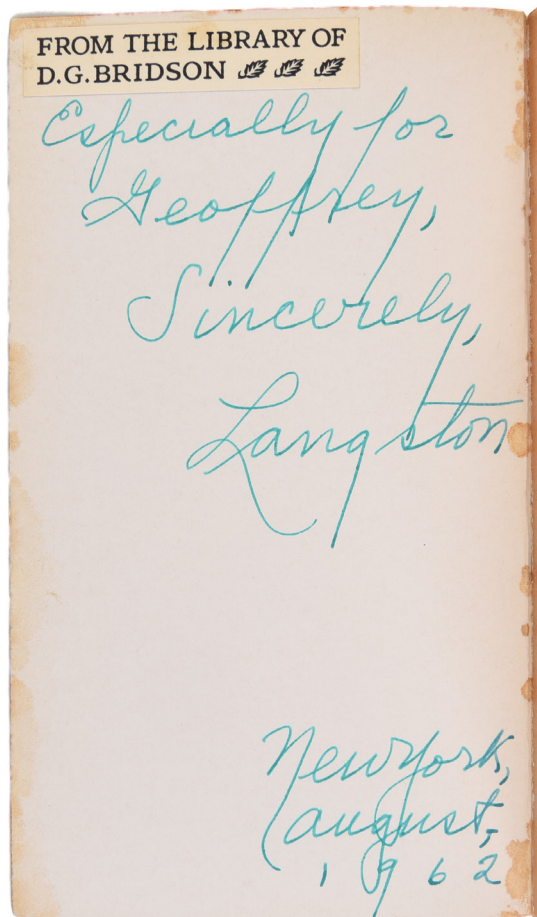 FROM THE LIBRARY OF
D.G. BRIDSON
Especially for
Geoffrey,
Sincerely,
Langston
New York,
August,
1962